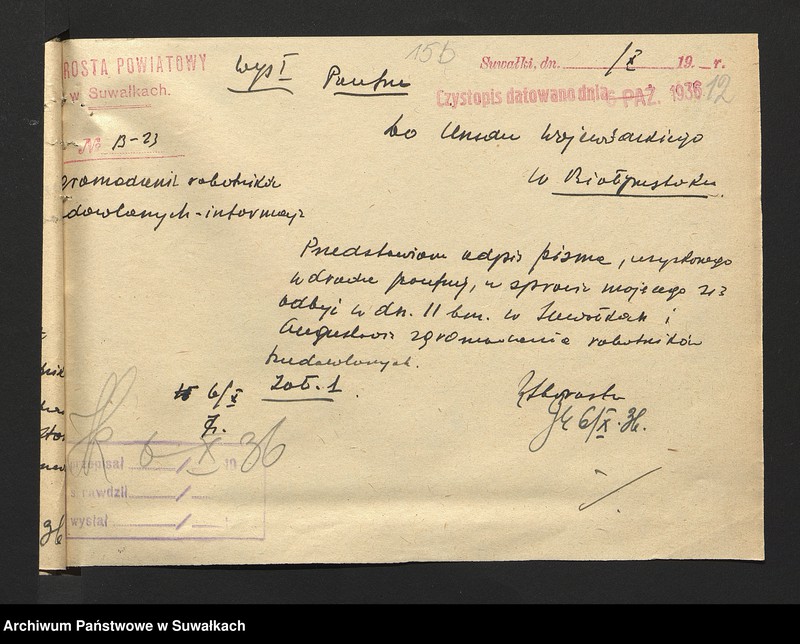 ROSTA POWIATOWY
w Suwałkach.
Nr B-23
Wys I
Poufne
15b
Suwałki, dn. /X 19 r.
Czystopis datowano dnia 6 PAŹ. 1936
12
Do Urzędu Wojewódzkiego
w Białymstoku
gromadzenie robotników
dowlanych - informacje
Przedstawiam odpis pisma, uzyskanego
w drodze poufnej, w sprawie mającego się
odbyć w dn. 11 bm. w Suwałkach i
Augustowie zgromadzenia robotników
budowlanych.
Zał. 1
6/X
Starosta
6/X. 36.
6 X 36
przepisał / 19
sprawdził /
wysłał /
36
Archiwum Państwowe w Suwałkach